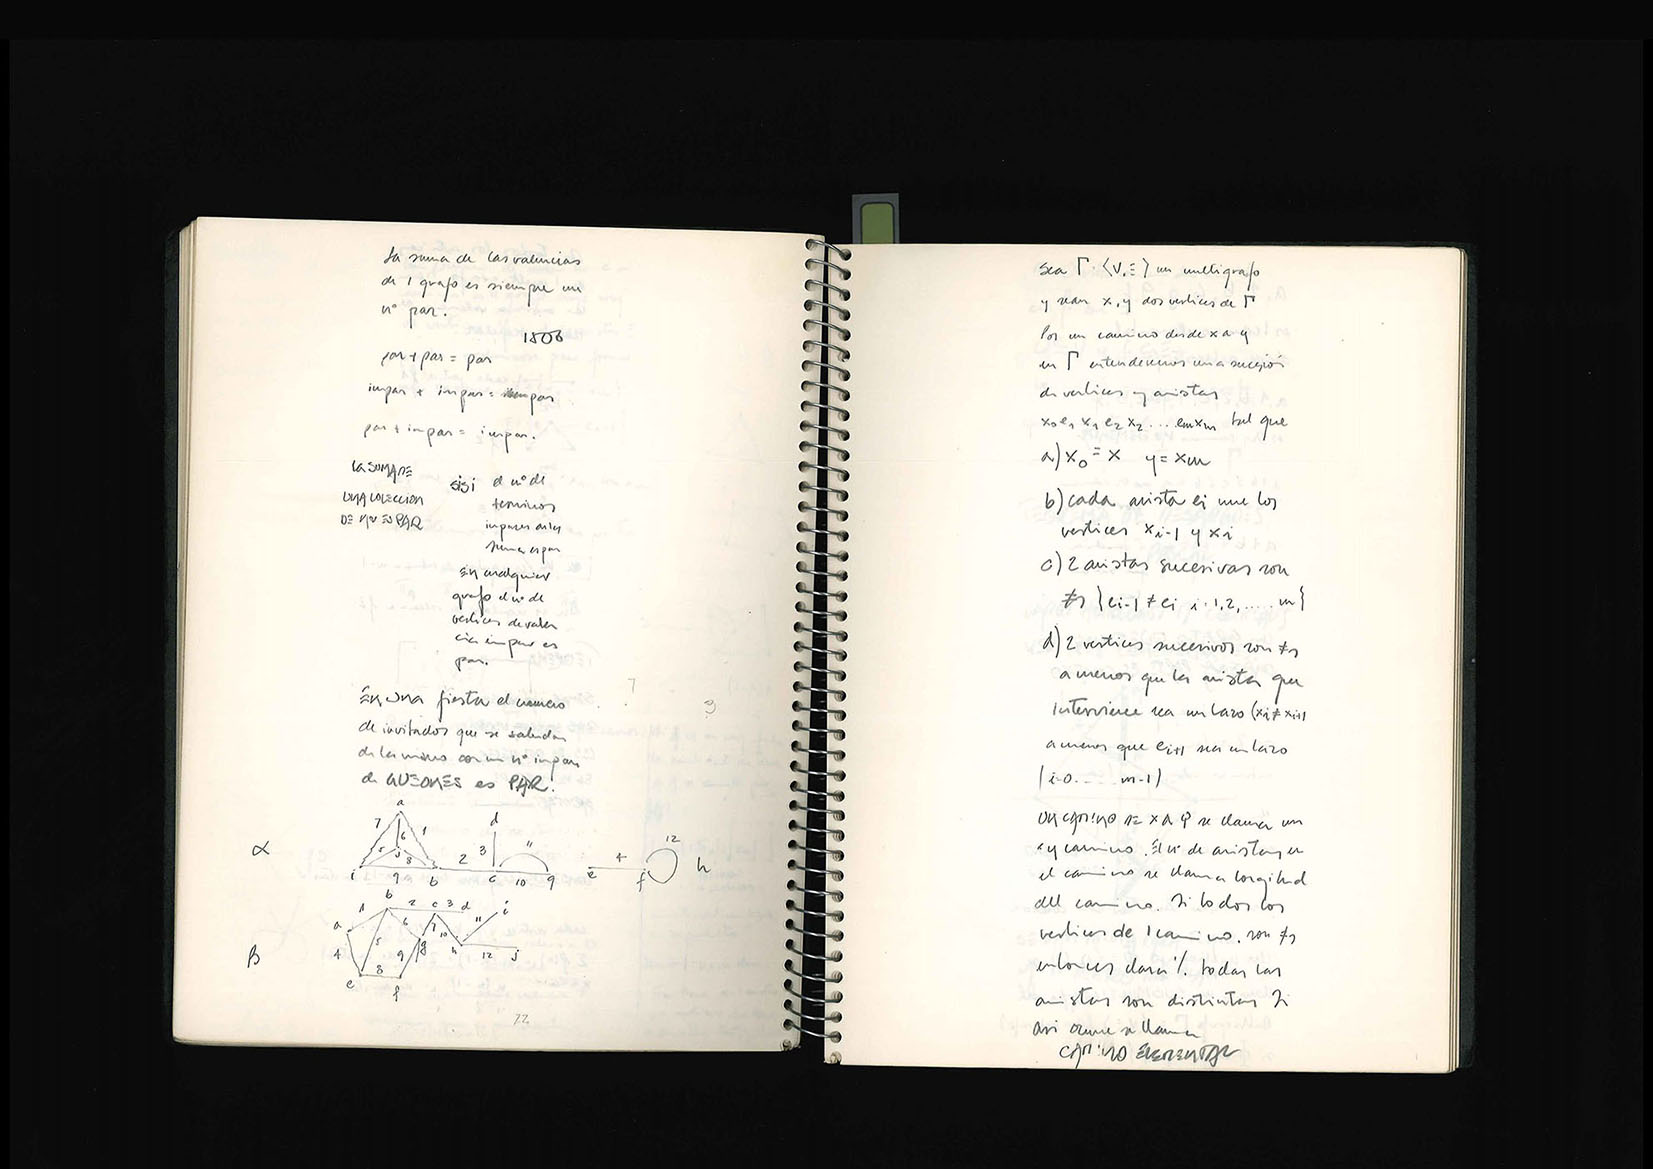 La suma de las valencias
de 1 grafo es siempre un
nº par.
par + par = par
impar + impar = par
par + impar = impar.
LA SUMA DE
UNA COLECCION
DE Nº ES PAR
sisi el nº de
terminos
impares de la
suma es par
En cualquier
grafo el nº de
vertices de valen
cia impar es
par.
En una fiesta el numero
de invitados que se saludan
de las manos con un nº impar
de QUEONES es PAR.
α
a
7 6 1
5 j 8
i 9 b 2 c 10 g
d
3
11
e 4 f
12
h
β
b 2 c 3 d
1
a
4 5 6
e 8 f
9 g
7 10
h 11 i
12 j
72
7
3
Sea Γ = ⟨V, E⟩ un multigrafo
y sean x, y dos vertices de Γ
Por un camino desde x a y
en Γ entendemos una sucesión
de vertices y aristas
x₀ e₁ x₁ e₂ x₂ ... em xm tal que
a) x₀ = x y = xm
b) cada arista ei une los
vertices xi-1 y xi
c) 2 aristas sucesivas son
≠s {ei-1 ≠ ei i = 1, 2, .... m}
d) 2 vertices sucesivos son ≠s
a menos que la arista que
interviene sea un lazo (xi ≠ xi+1
a menos que ei+1 sea un lazo
(i=0.... m-1)
UN CAMINO DE x a y se llama un
xy camino. El nº de aristas en
el camino se llama longitud
del camino. Si todos los
vertices de 1 camino. son ≠s
entonces todas las
aristas son distintas Si
asi ocurre se llama
CAMINO ELEMENTAL